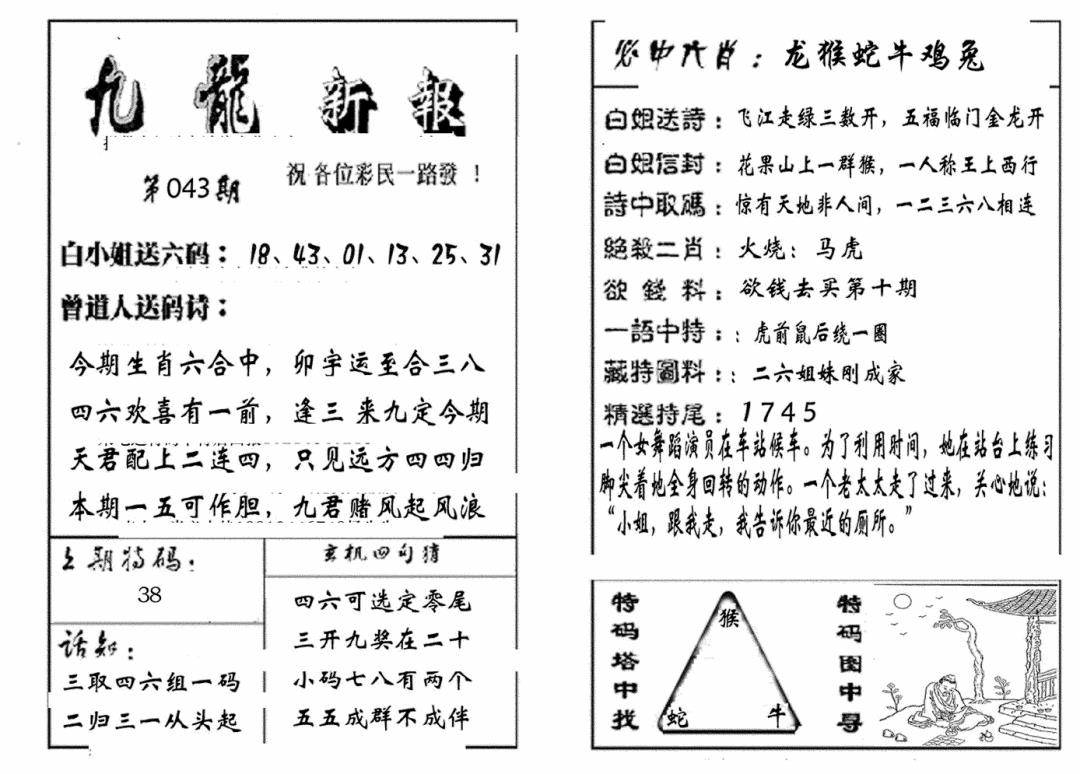 九龍新報
第043期
祝各位彩民一路發！
白小姐送六码：18、43、01、13、25、31
曾道人送码诗：
今期生肖六合中，卯宇运至合三八
四六欢喜有一前，逢三来九定今期
天君配上二连四，只见远方四四归
本期一五可作胆，九君赌风起风浪
上期特码：
38
话知：
三取四六组一码
二归三一从头起
玄机四句猜
四六可选定零尾
三开九奖在二十
小码七八有两个
五五成群不成伴
必中六肖：龙猴蛇牛鸡兔
白姐送詩：飞江走绿三数开，五福临门金龙开
白姐信封：花果山上一群猴，一人称王上西行
詩中取碼：惊有天地非人间，一二三六八相连
絕殺二肖：火烧：马虎
欲錢料：欲钱去买第十期
一語中特：：虎前鼠后绕一圈
藏特圖料：：二六姐妹刚成家
精選特尾：1745
一个女舞蹈演员在车站候车。为了利用时间，她在站台上练习
脚尖着地全身回转的动作。一个老太太走了过来，关心地说：
“小姐，跟我走，我告诉你最近的厕所。”
特码塔中找
猴
蛇
牛
特码图中寻